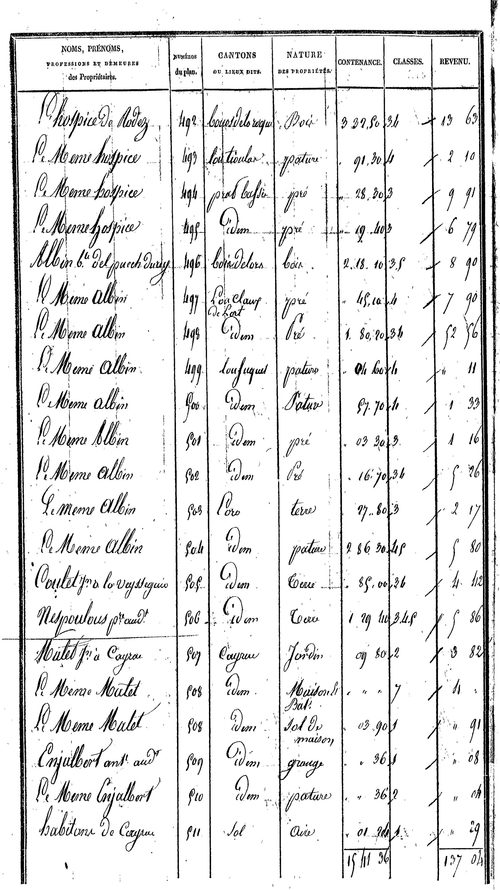 NOMS, PRÉNOMS, PROFESSIONS ET DEMEURES des Propriétaires. NUMÉROS du plan. CANTONS OU LIEUX DITS. NATURE DES PROPRIÉTÉS. CONTENANCE. CLASSES. REVENU.
L'hospice de Rodez 492 Bois 3 22 50 34 13 63
Le Meme hospice 493 pature " 91 30 4 2 10
Le Meme hospice 494 pré " 28 30 3 9 91
Le Meme hospice 495 idem pré " 19 40 3 6 79
Albin 496 bois 2 18 10 35 8 90
Le Meme Albin 497 pré " 45 10 4 7 90
Le Meme Albin 498 idem Pré 1 80 20 34 52 56
Le Meme Albin 499 loufuquet pature " 04 60 4 " 11
Le Meme Albin 500 idem Pature " 57 70 4 1 33
Le Meme Albin 501 idem pré " 03 30 3 1 16
Le Meme Albin 502 idem Pré " 16 70 34 5 26
Le meme Albin 503 terre " 27 80 3 2 17
Le Meme Albin 504 idem pature 2 86 30 45 5 80
Coulet 505 idem Terre " 85 00 36 4 42
Nespoulous 506 idem Terre 1 29 40 345 5 86
Matet Jn a Cayrac 507 Cayrac Jardin 09 80 2 3 82
Le Meme Matet 508 idem Maison & Bat. " " 7 4 "
Le Meme Matet 508 idem Sol de maison 03 90 1 " 91
Enjalbert ant. audt 509 idem grange " 36 1 " 08
Le Meme Enjalbert 510 idem pature " 36 2 " 04
habitans de Cayrac 511 Sol Aire 01 24 1 " 29
15 41 36 137 04